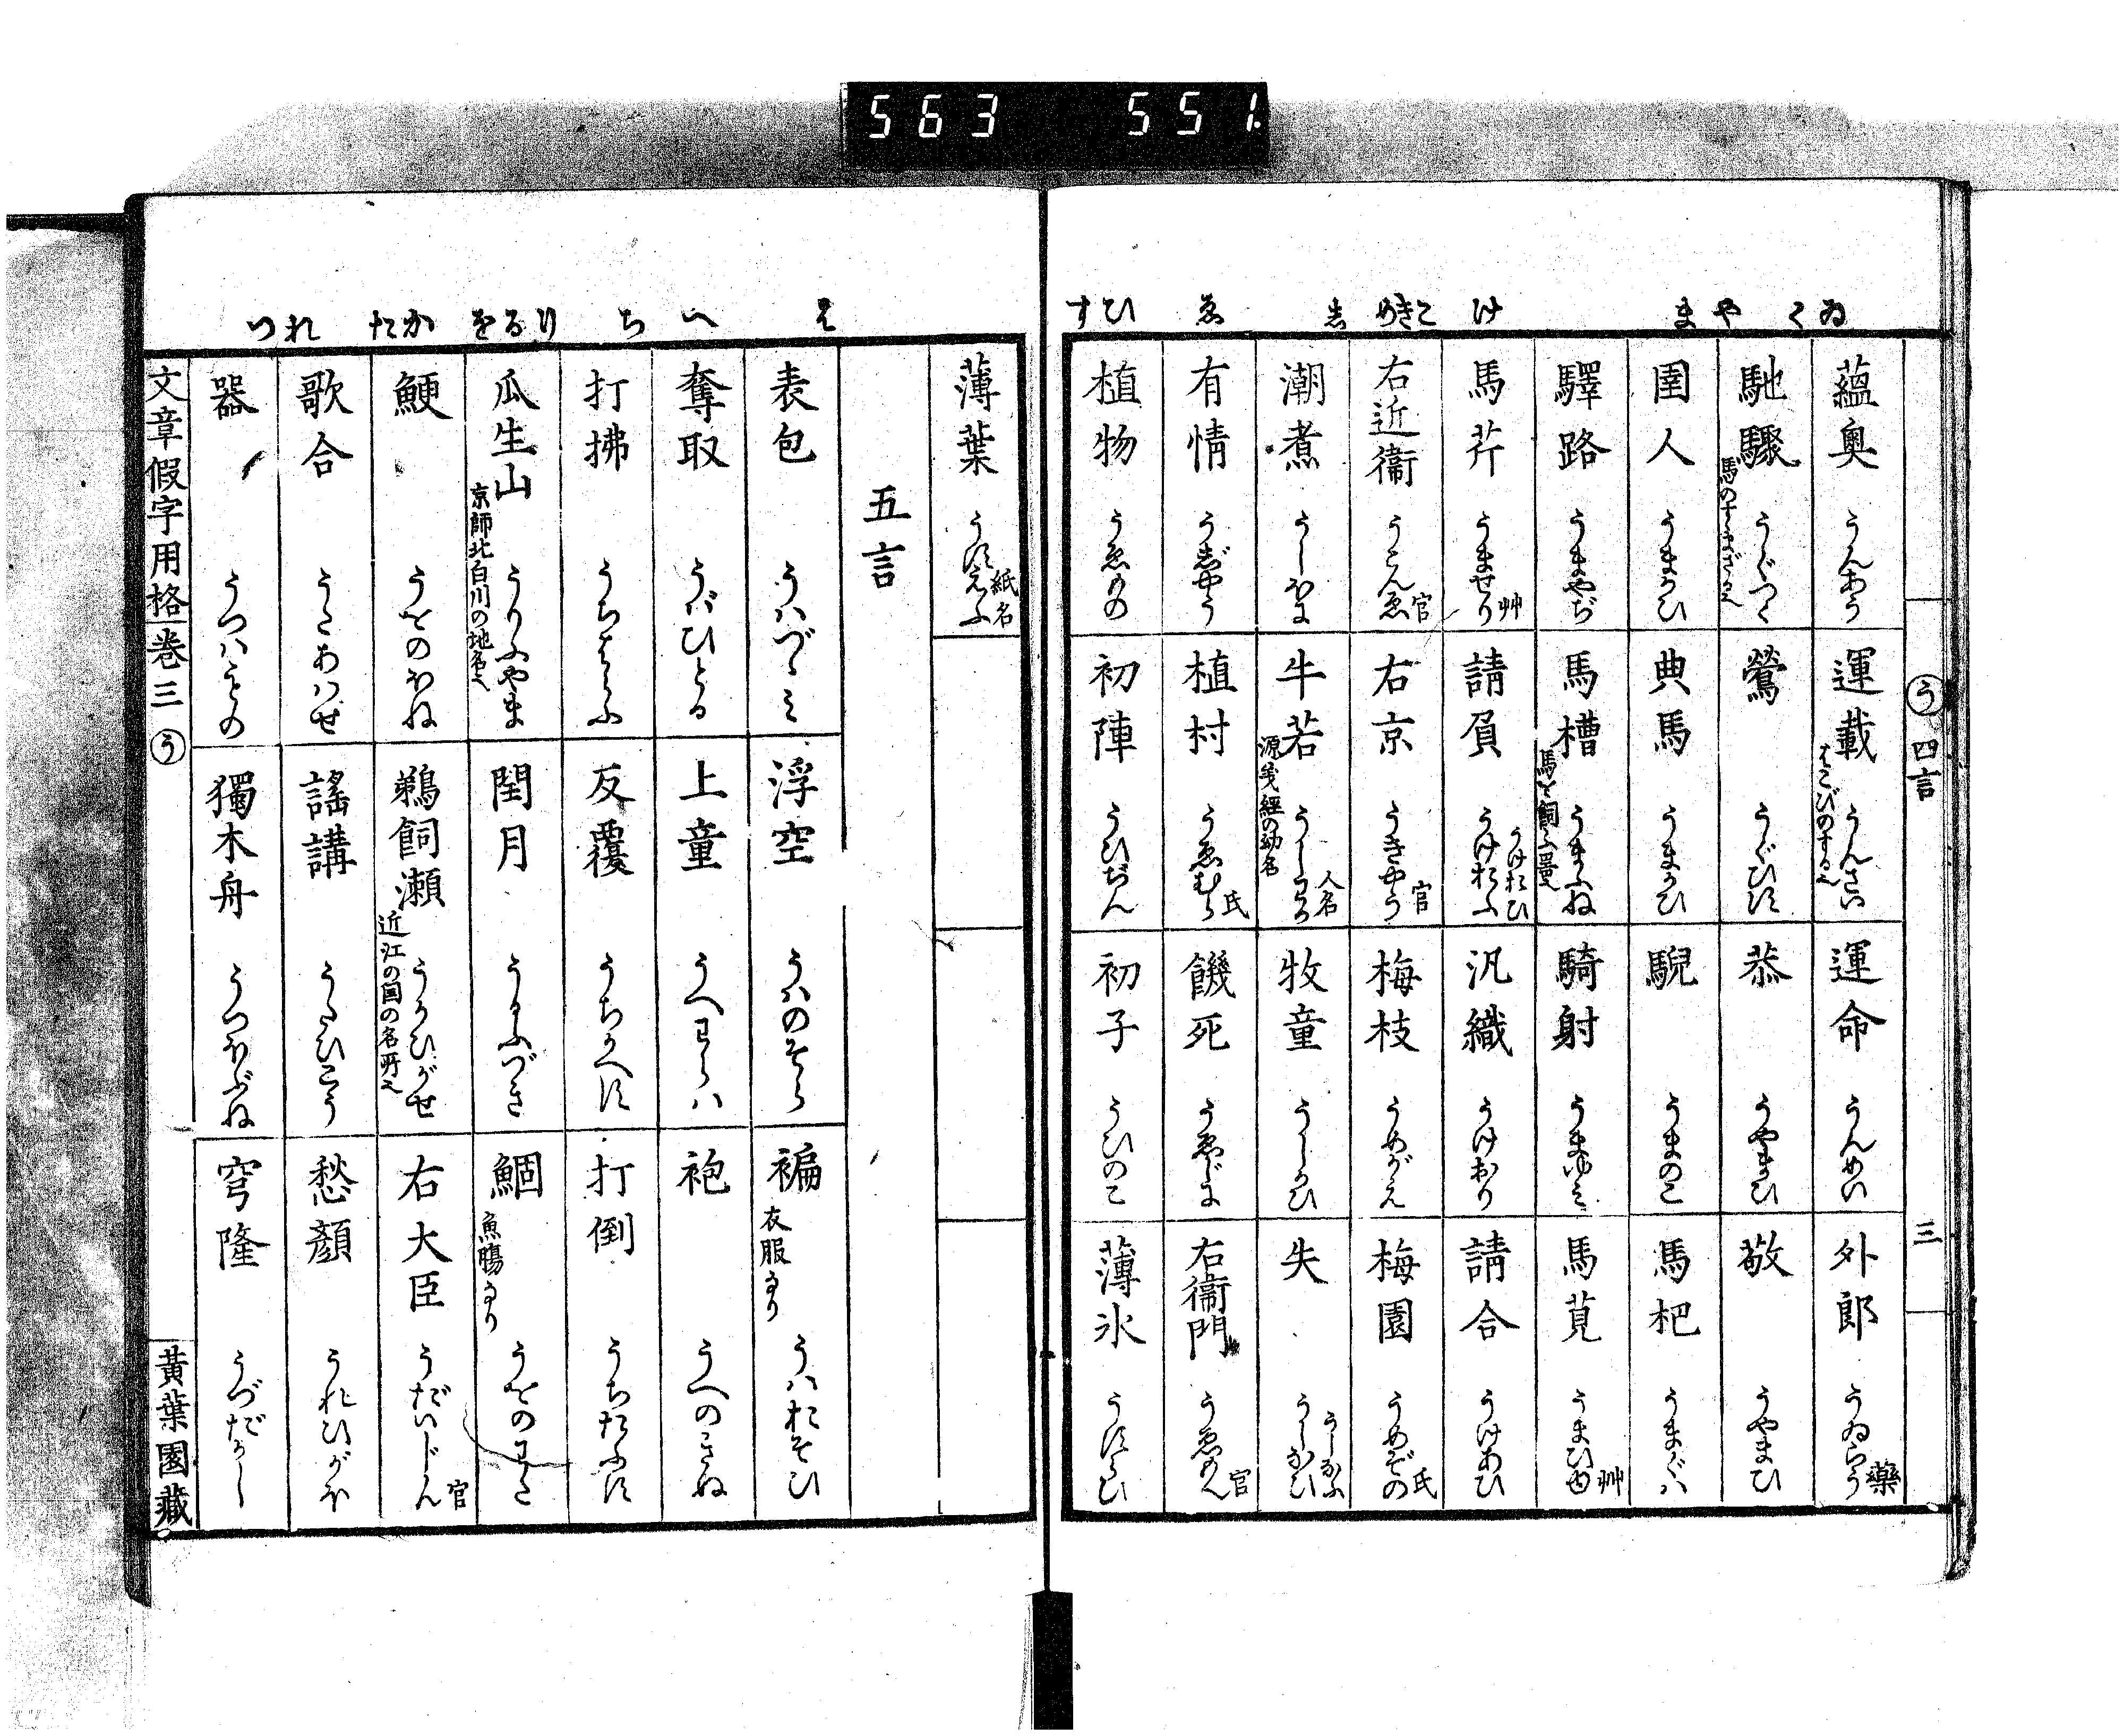 563 551
ゐ く や ま け こ き め し ゑ ひ す
う 四言 三
蘊奥 うんおう
運載 うんさい はこびのする也
運命 うんめい
外郎 うゐらう 藥
馳驟 うぐつく 馬のすまざる也
鶯 うぐひす
恭 うやまひ
敬 うやまひ
圉人 うまかひ
典馬 うまかひ
騉 うまのこ
馬杷 うまぐハ
驛路 うまやぢ
馬槽 うまふね 馬を飼ふ器也
騎射 うまゆミ
馬莧 うまひゆ 艸
馬芹 うませり 艸
請負 うけおふ うけおひ
汎織 うけおり
請合 うけあひ
右近衞 うこんゑ 官
右京 うきやう 官
梅枝 うめがえ
梅園 うめぞの 氏
潮煮 うしほに
牛若 うしわか 人名 源義經の幼名
牧童 うしかひ
失 うしなふ うしなひ
有情 うじやう
植村 うゑむら 氏
饑死 うゑじに
右衞門 うゑもん 官
植物 うゑもの
初陣 うひぢん
初子 うひのこ
薄氷 うすらひ
は へ ち り る を か た れ つ
薄葉 うすえふ 紙名
五言
表包 うハづゝミ
浮空 うハのそら
褊 衣服なり うハおそひ
奪取 うバひとる
上童 うへわらハ
袍 うへのきぬ
打拂 うちはらふ
反覆 うちかへす
打倒 うちたふす
瓜生山 うりふやま 京師北白川の地名也
閏月 うるふづき
鯝 魚膓なり うをのわた
鯁 うをのほね
鵜飼瀬 うかひがせ 近江の国の名所也
右大臣 うだいじん 官
歌合 うたあハせ
謠講 うたひこう
愁顏 うれひがほ
器 うつハもの
獨木舟 うつほぶね
穹隆 うづだかし
文章假字用格 巻三 う
黄葉園藏